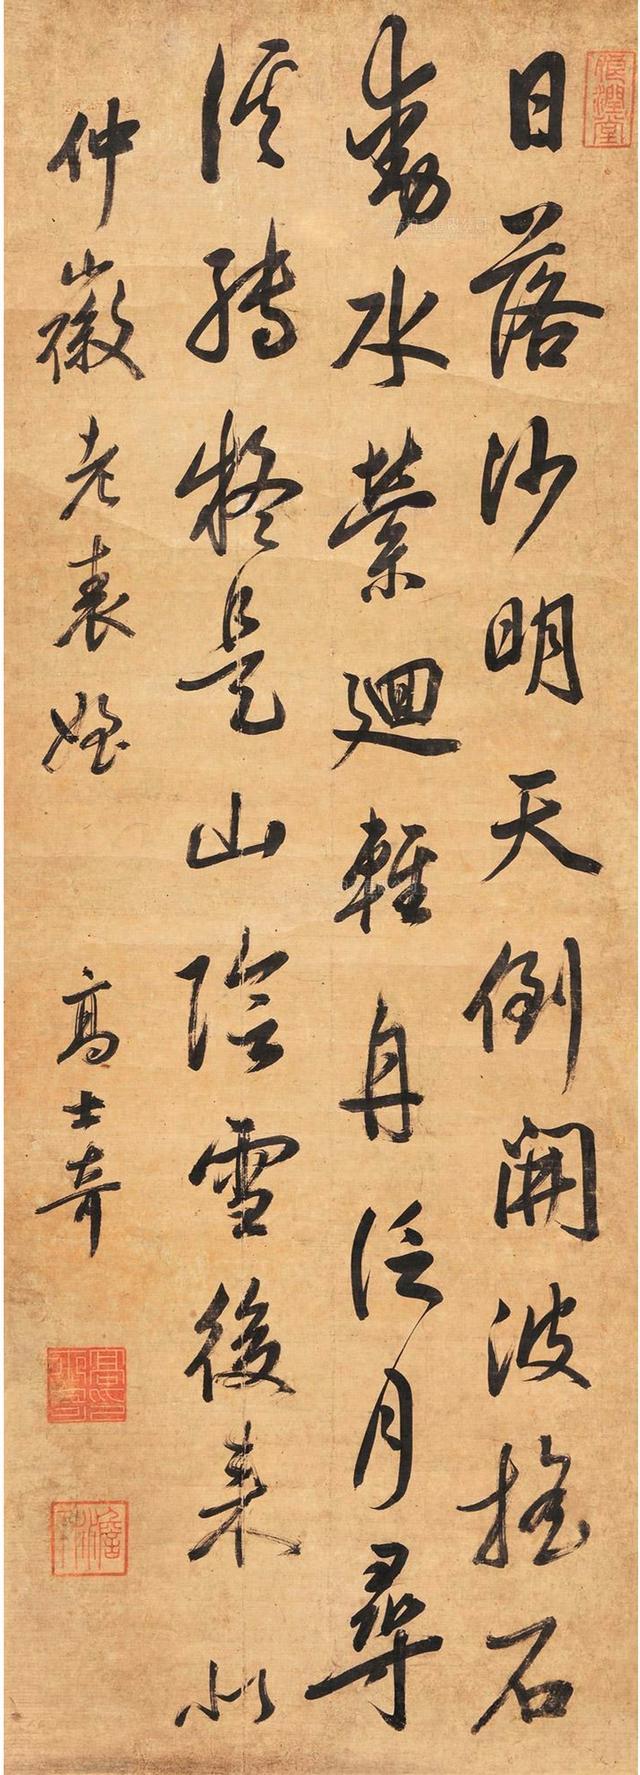 日落沙明天倒開波搖石
動水縈迴輕舟泛月尋
溪轉疑是山陰雪後来似
仲徽老表姪
高士奇